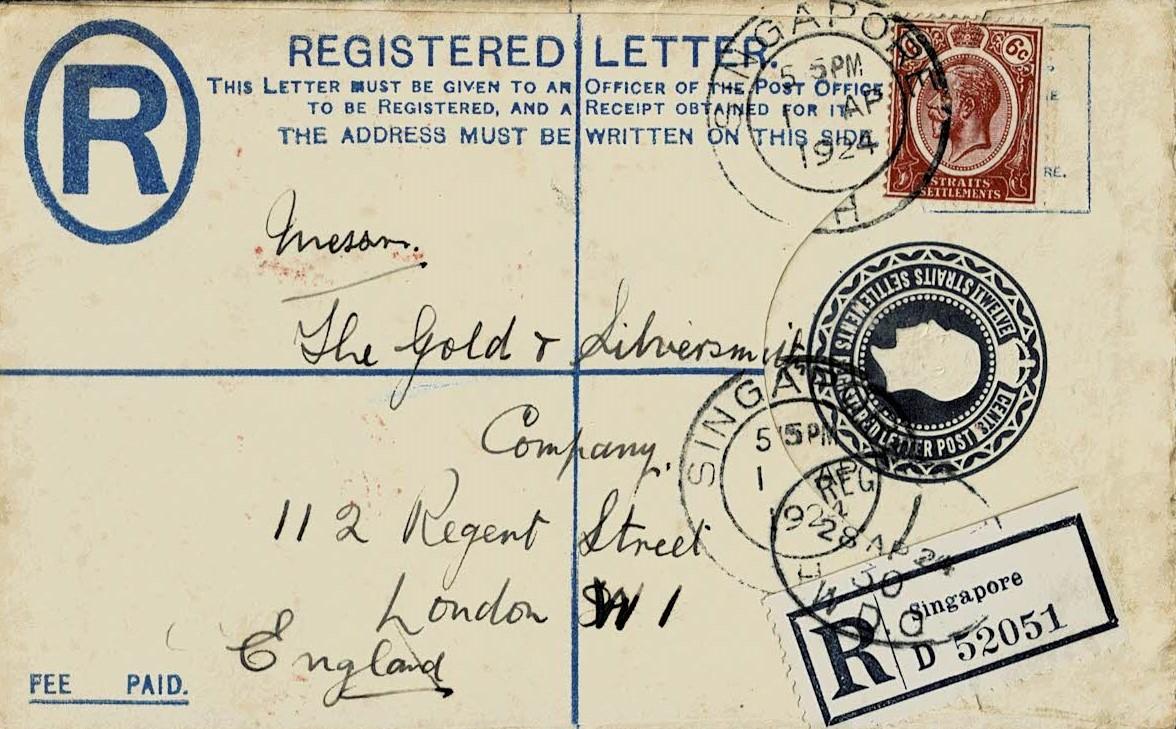 R
REGISTERED LETTER.
THIS LETTER MUST BE GIVEN TO AN OFFICER OF THE POST OFFICE
TO BE REGISTERED, AND A RECEIPT OBTAINED FOR IT
THE ADDRESS MUST BE WRITTEN ON THIS SIDE
SINGAPORE
5 5PM
1 AP
1924
H
6c
STRAITS
SETTLEMENTS
RE.
Messrs.
The Gold & Silversmith
Company.
112 Regent Street
London W1
England
STRAITS SETTLEMENTS REGISTERED LETTER POST
TWELVE CENTS
SINGAP
5 5PM
1 AP
192
H
REG
28 AP 24
R
Singapore
D 52051
FEE PAID.